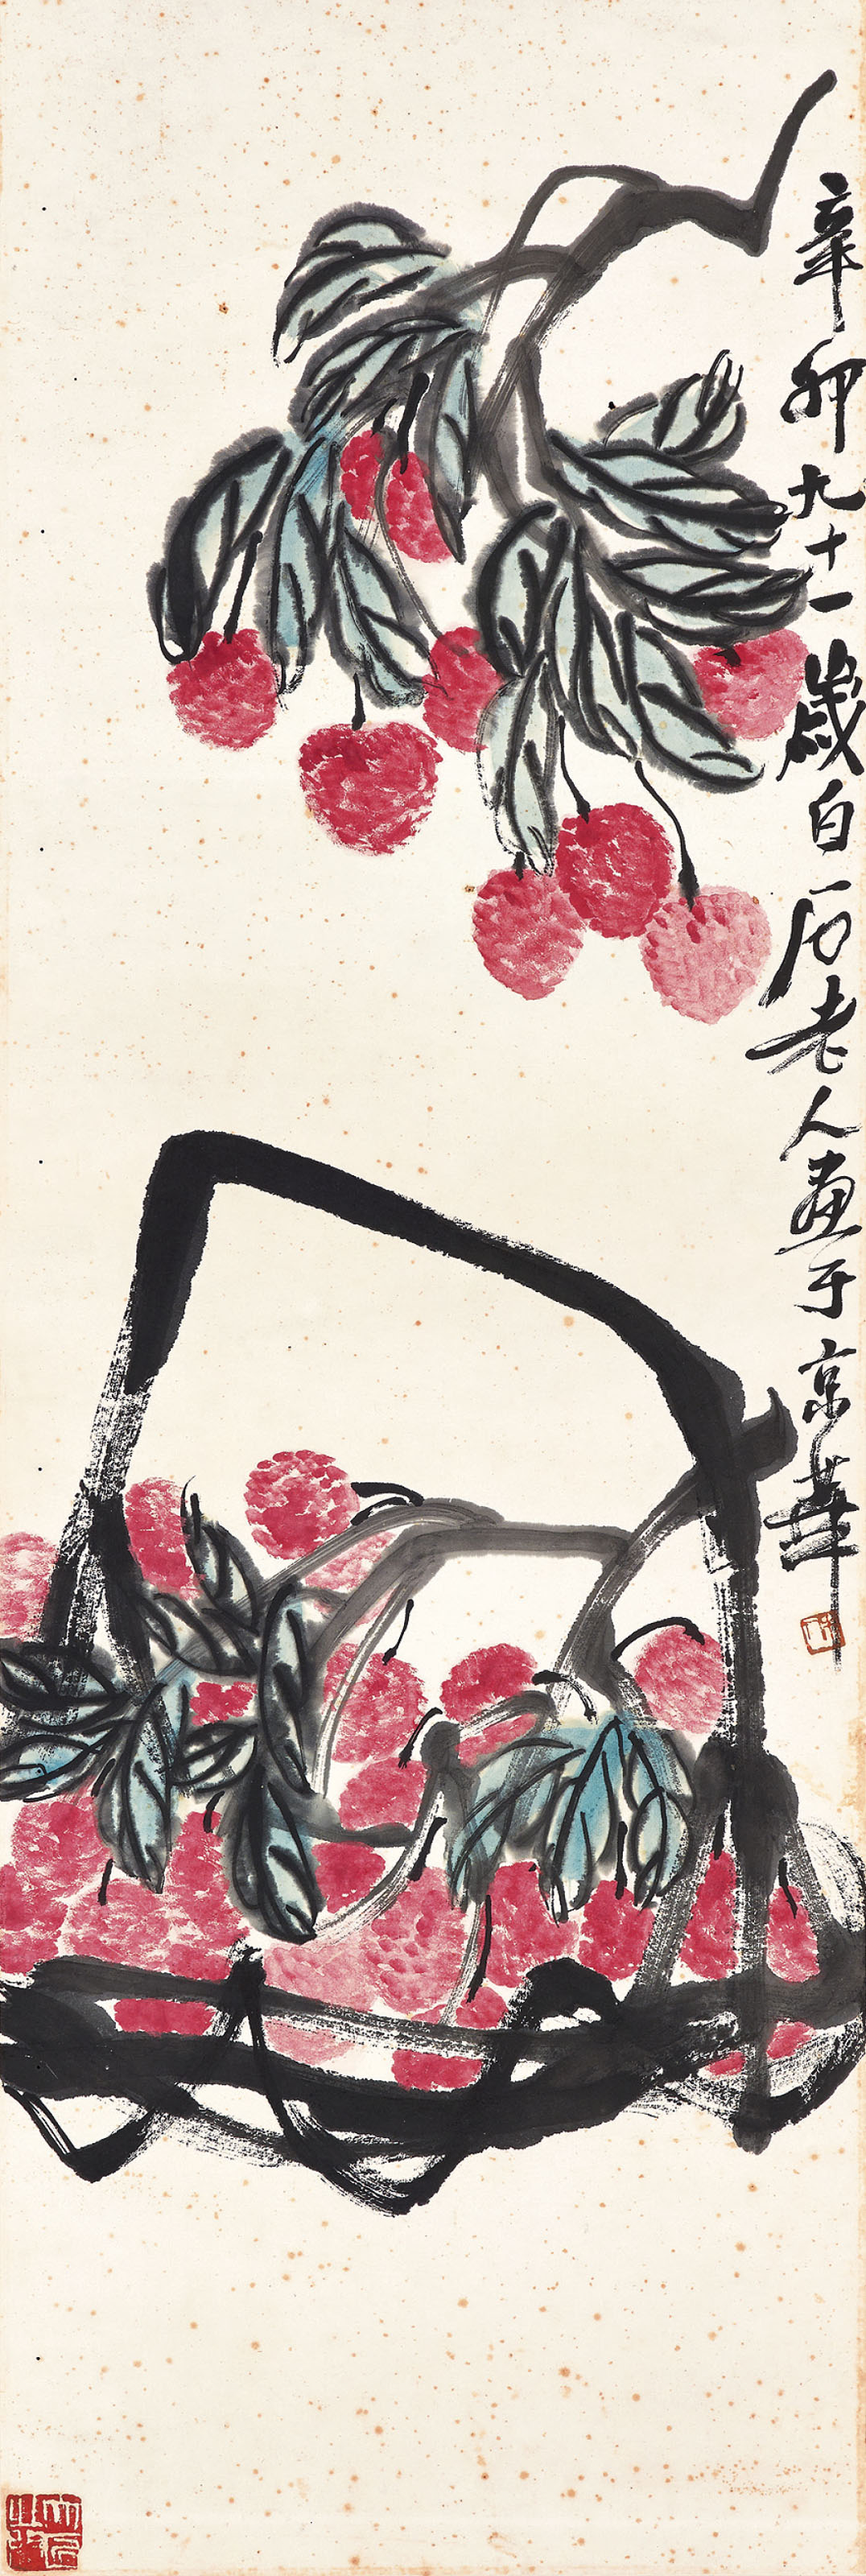 辛卯九十一歲白石老人畫于京華